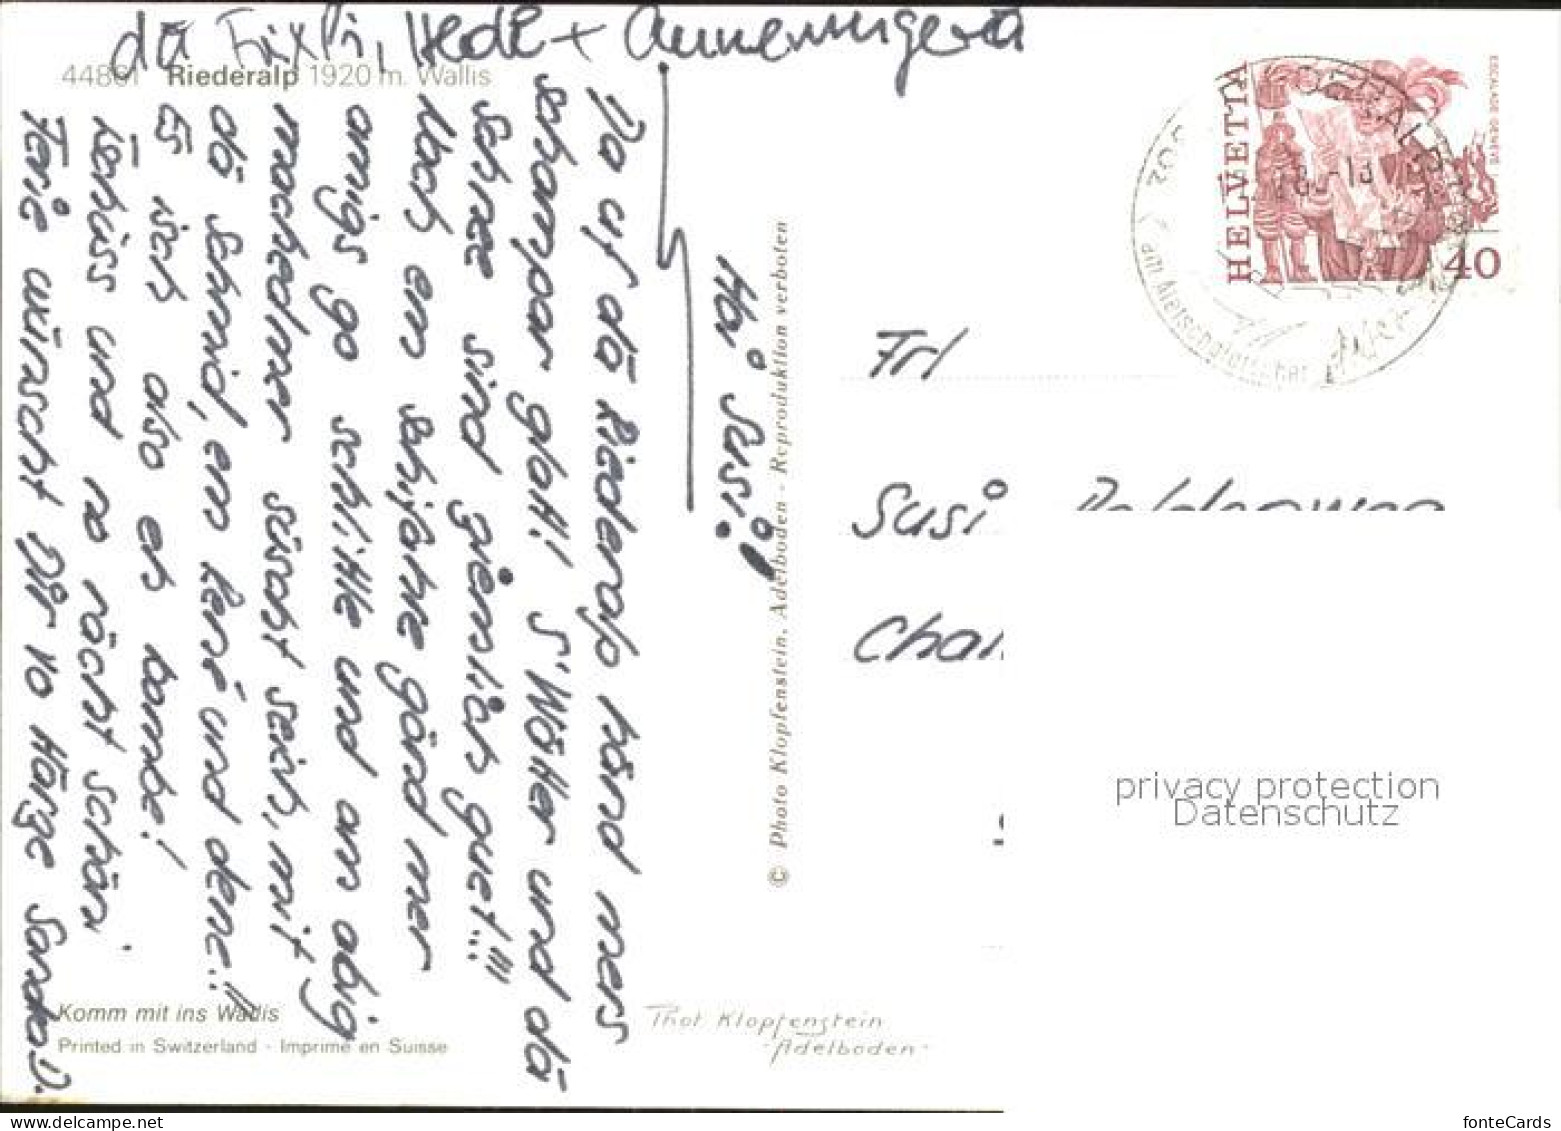 dä Fixli, Hedi + Annemargreth
44861 Riederalp 1920 m. Wallis
Hoi Susi!
Da uf dä Riederalp händ mers
schampar glatt! S'Wätter und dä
Schnee sind ziemlich guet!!!
Nach em schifahre gönd mer
amigs go schlittle und am abig
mached mer süscht seich, mit
dä Schmid, em René und dene..!
Es isch also en bombe!
Tschüss und no rächt schöni
Ferie wünscht Dir vo Härze Sandra D.
Komm mit ins Wallis
Printed in Switzerland - Imprimé en Suisse
© Photo Klopfenstein, Adelboden - Reproduktion verboten
Phot. Klopfenstein
Adelboden
HELVETIA
ESCALADE GENÈVE
40
Frl
Susi
privacy protection
Datenschutz
fonteCards